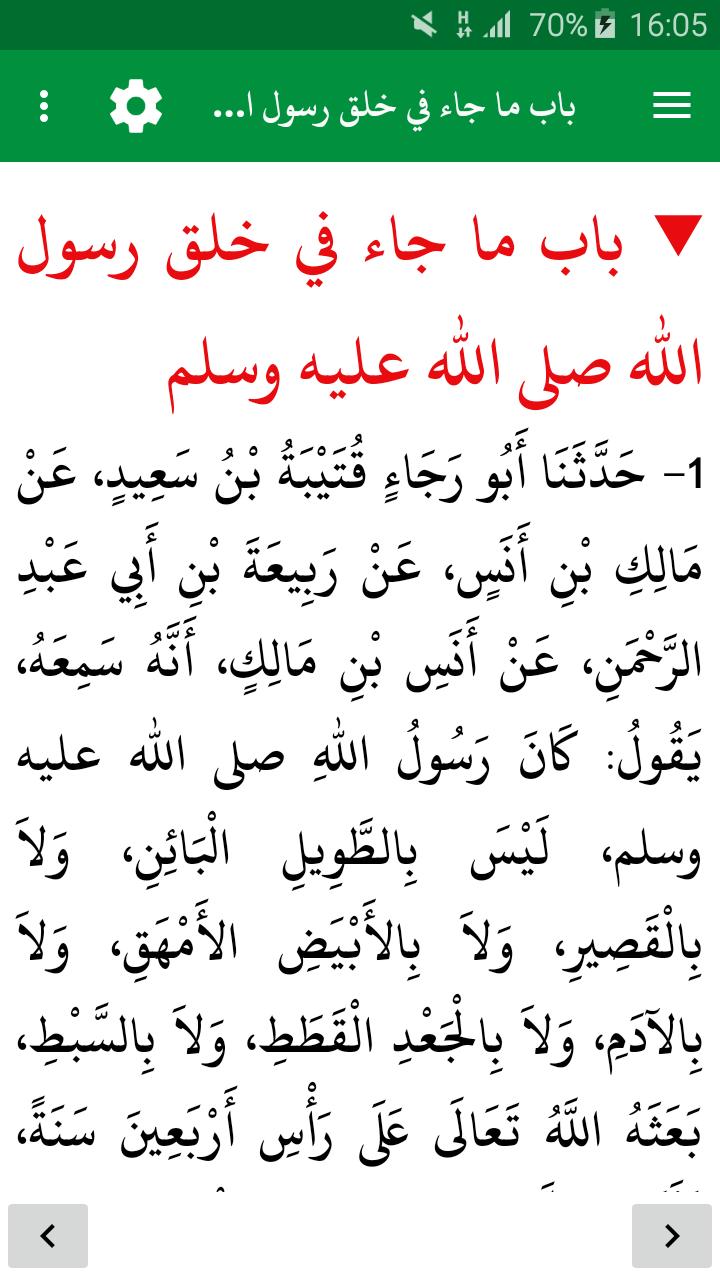 70% 16:05
باب ما جاء في خلق رسول ا...
باب ما جاء في خلق رسول
الله صلى الله عليه وسلم
1- حَدَّثَنَا أَبُو رَجَاءٍ قُتَيْبَةُ بْنُ سَعِيدٍ، عَنْ
مَالِكِ بْنِ أَنَسٍ، عَنْ رَبِيعَةَ بْنِ أَبِي عَبْدِ
الرَّحْمَنِ، عَنْ أَنَسِ بْنِ مَالِكٍ، أَنَّهُ سَمِعَهُ،
يَقُولُ: كَانَ رَسُولُ اللهِ صلى الله عليه
وسلم، لَيْسَ بِالطَّوِيلِ الْبَائِنِ، وَلاَ
بِالْقَصِيرِ، وَلاَ بِالأَبْيَضِ الأَمْهَقِ، وَلاَ
بِالآدَمِ، وَلاَ بِالْجَعْدِ الْقَطَطِ، وَلاَ بِالسَّبْطِ،
بَعَثَهُ اللَّهُ تَعَالَى عَلَى رَأْسِ أَرْبَعِينَ سَنَةً،